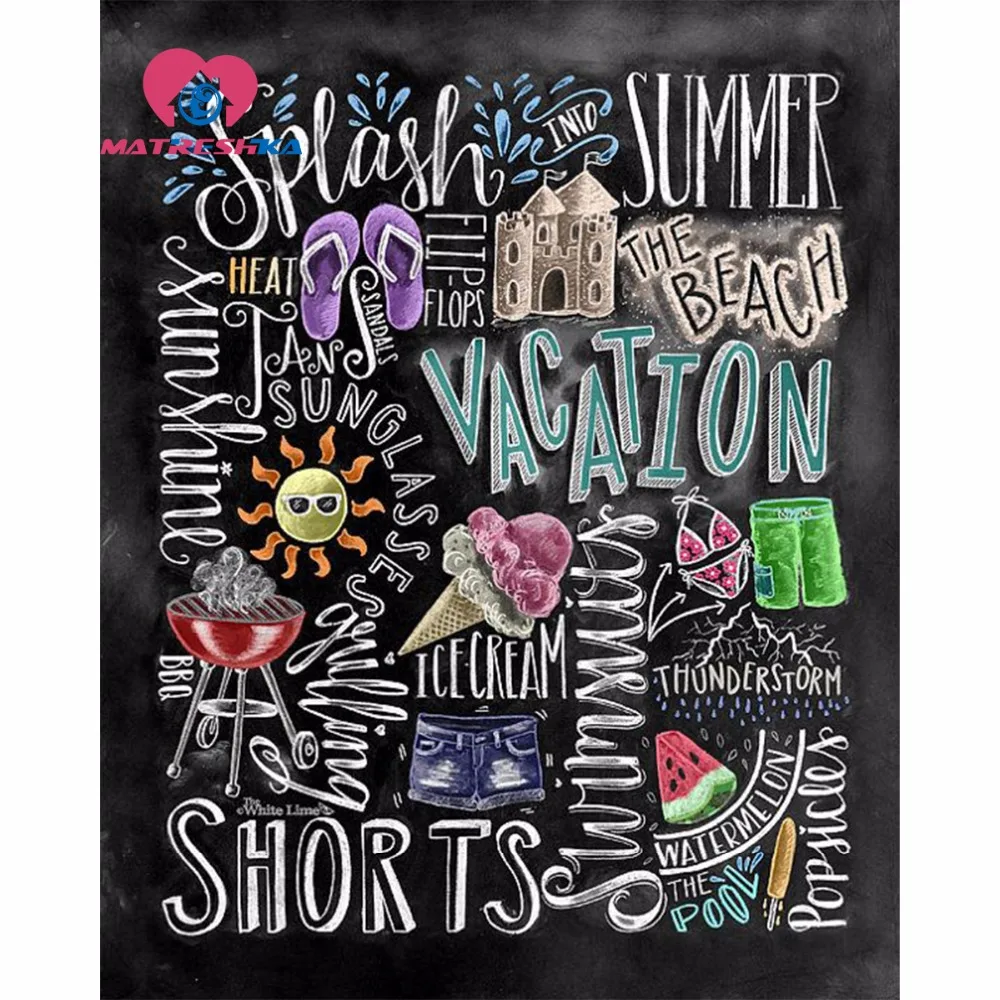 MATRESHKA
Splash
INTO
SUMMER
sunshine
HEAT
FLIP-
FLOPS
SANDALS
THE
BEACH
TAN
SUNGLASSES
VACATION
BBQ
grilling
ICE-CREAM
Swimsuits
THUNDERSTORM
The
©White Lime
SHORTS
WATERMELON
THE
POOL
POPSICLES